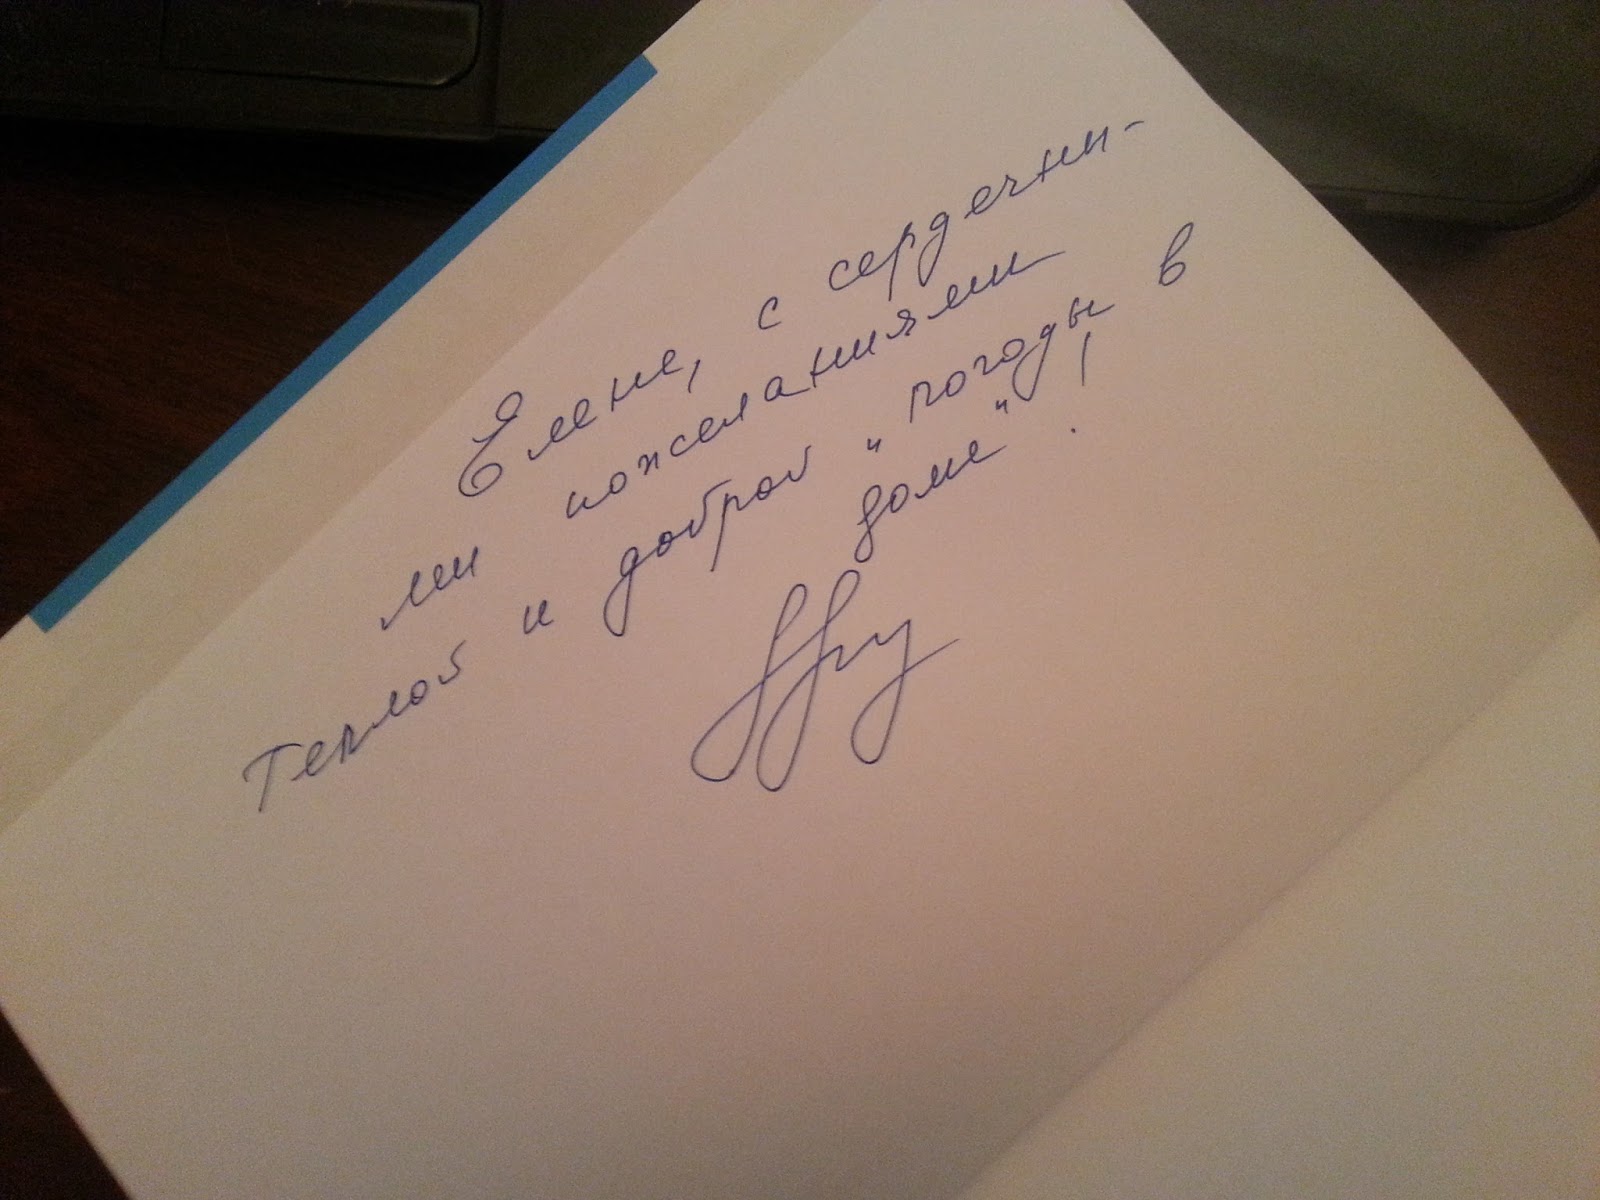 Елене, с сердечны-
ми пожеланиями
теплой и доброй "погоды в
доме"!